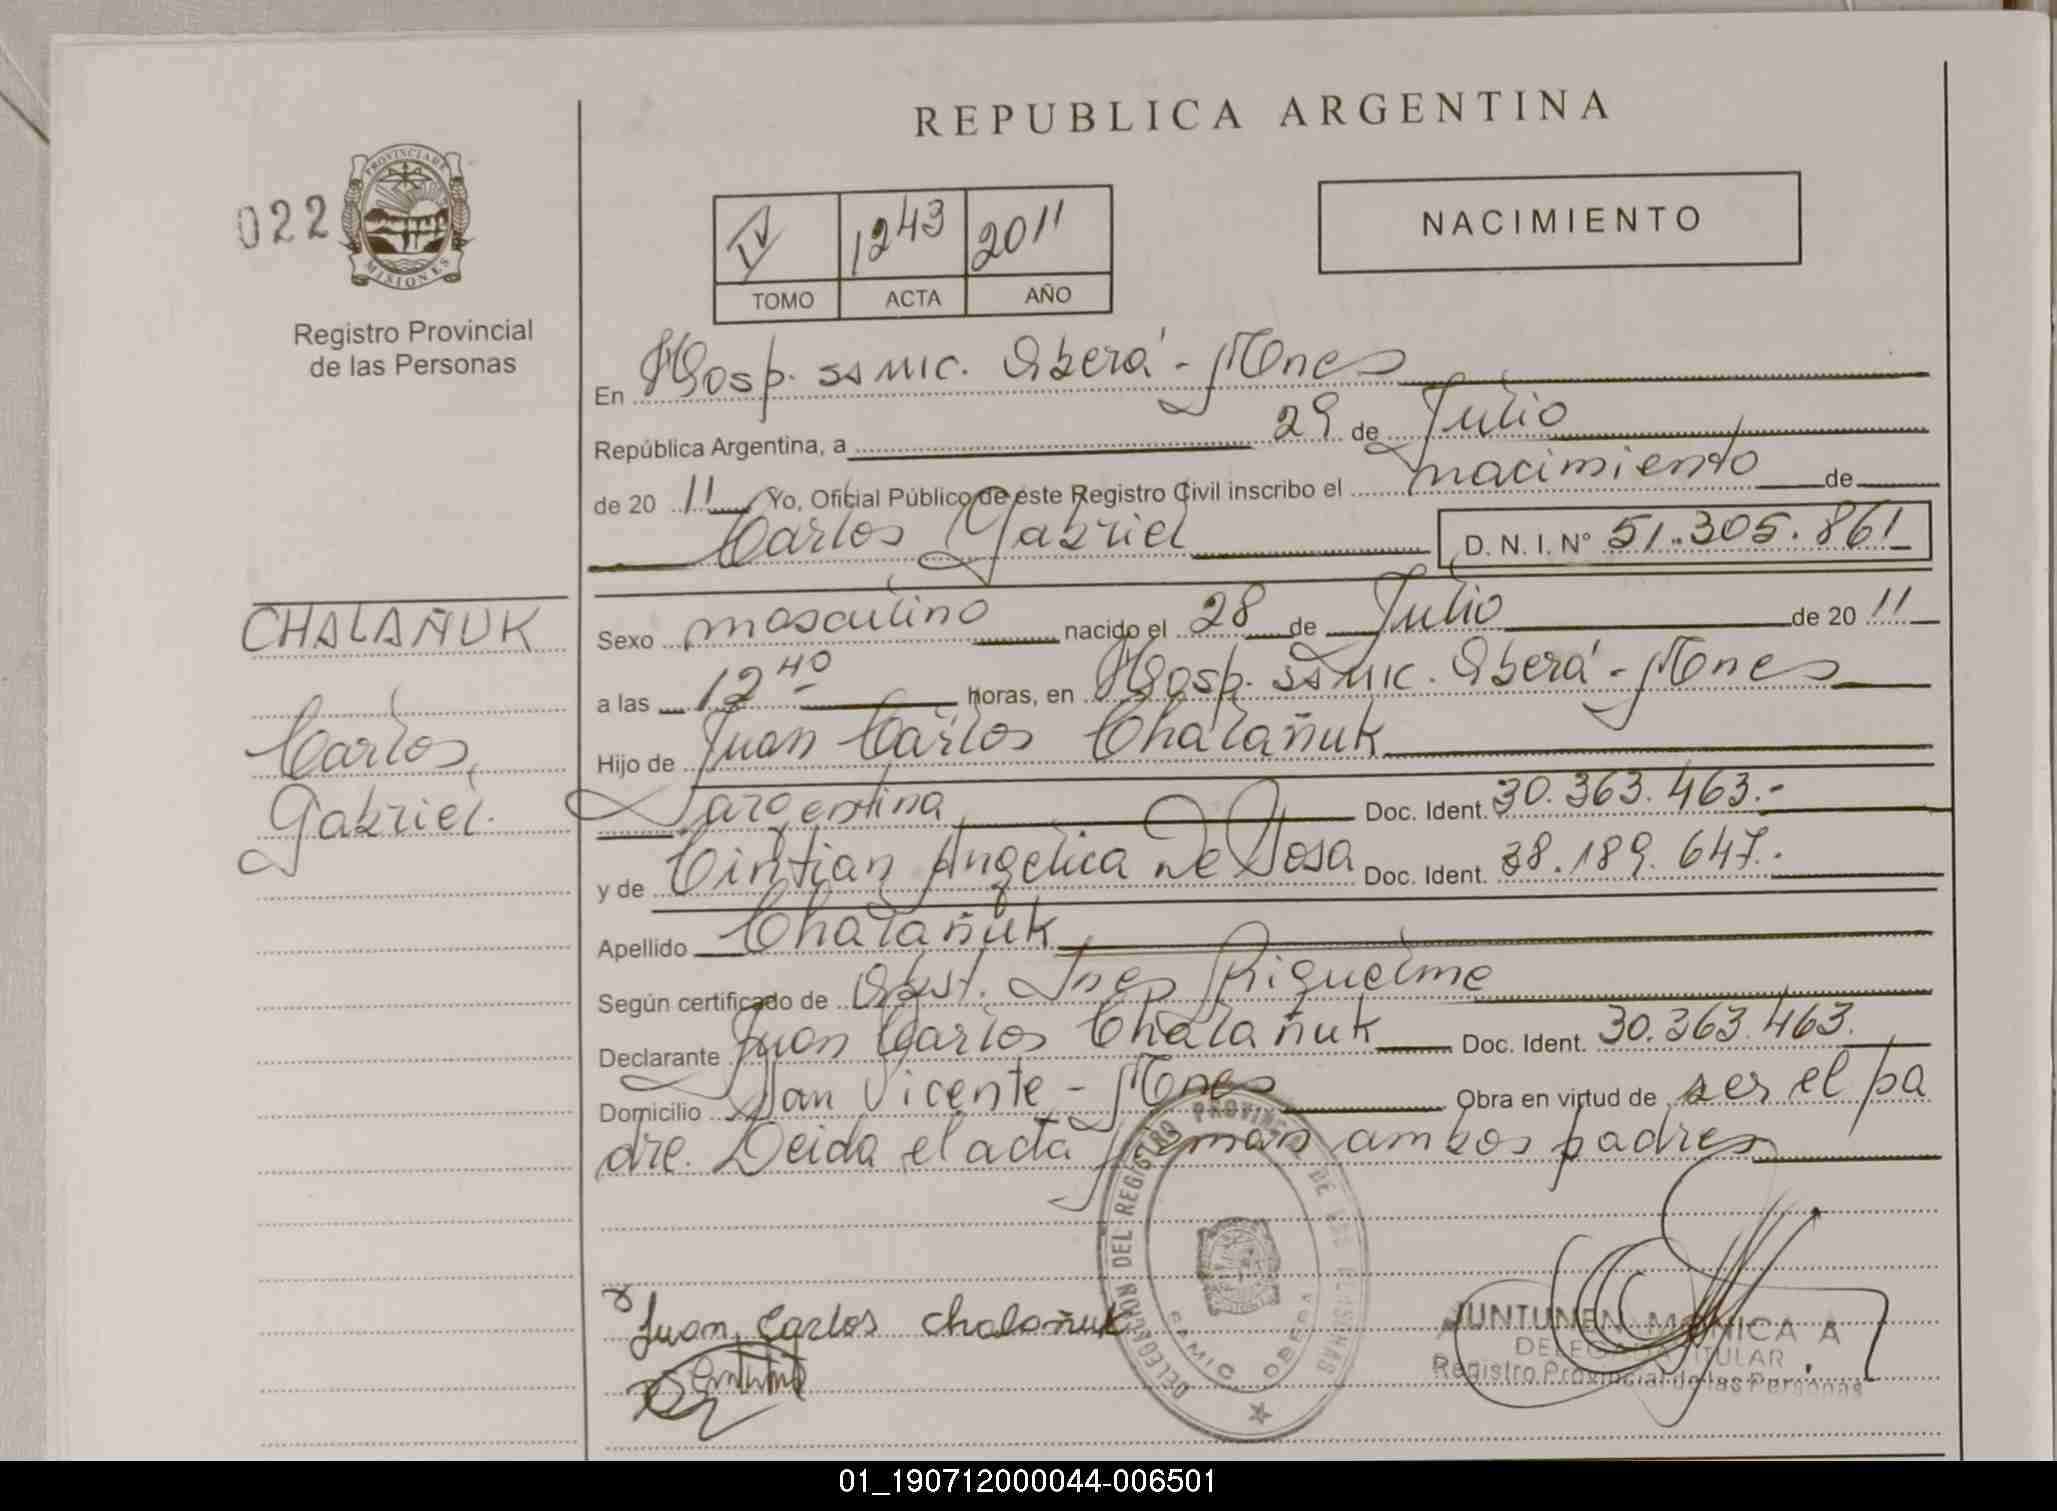 REPUBLICA ARGENTINA
022
PROVINCIA DE
MISIONES
Registro Provincial
de las Personas
IV 1243 2011
TOMO ACTA AÑO
NACIMIENTO
En Hosp. SAMIC. Oberá - Mnes
República Argentina, a 29 de Julio
de 20 11 Yo, Oficial Público de este Registro Civil inscribo el nacimiento de
Carlos Gabriel D. N. I. N° 51.305.861
CHALAÑUK
Carlos
Gabriel.
Sexo masculino nacido el 28 de Julio de 20 11
a las 12 40 horas, en Hosp. SAMIC. Oberá - Mnes
Hijo de Juan Carlos Chalañuk
argentina Doc. Ident. 30.363.463.-
y de Cintian Angelica De Sosa Doc. Ident. 38.189.647.-
Apellido Chalañuk
Según certificado de Obst. Ines Riquelme
Declarante Juan Carlos Chalañuk Doc. Ident. 30.363.463.
Domicilio San Vicente - Mnes Obra en virtud de ser el pa
dre. Leida el acta firman ambos padres
DELEGACION DEL REGISTRO PROVINCIAL DE LAS PERSONAS
SAMIC OBERA
Juan Carlos Chalañuk
JUNTUNEN MONICA A
DELEGADA TITULAR
Registro Provincial de las Personas
01_190712000044-006501